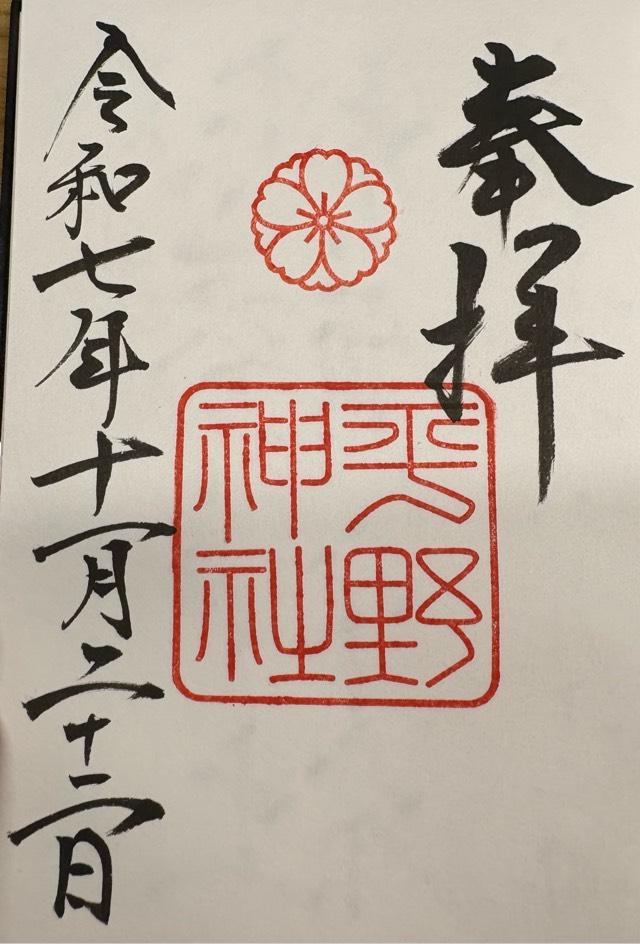 奉拝
平野
神社
令和七年十一月二十二日